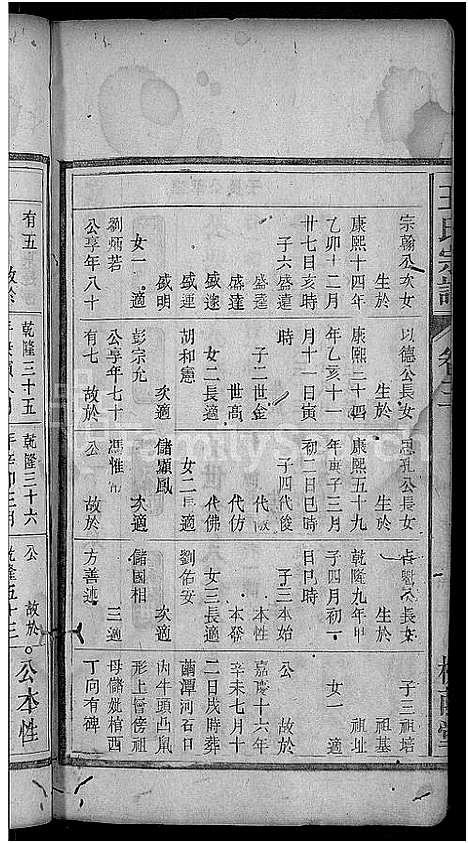 宗翰公次女
生於
康熙十四年
乙卯十二月
廿七日亥時
子六盛蓬
盛達
盛逵
盛運
盛明
女一適
劉炳若
公享年八十
有五
故於
以德公長女
生於
康熙三十四
年乙亥十一
月十一日寅
時
子二世金
世高
女二長適
胡和憲
次適
彭宗允
公享年七十
有七 故於
乾隆三十五
思孔公長女
生於
康熙五十九
年庚子三月
初二日巳時
子四代俊
代
代仿
代佛
女二長適
儲顯鳳
次適
馮惟
公 故於
乾隆三十六
公長女
生於
乾隆九年甲
子四月初一
日巳時
子三本始
本性
本發
女三長適
劉佑安
次適
儲國相
三適
方善連
公 故於
乾隆五十三
子三祖培
祖址
祖基
女一適
公 故於
嘉慶十六年
辛未七月十
二日戌時葬
繭潭河石口
內牛頭凸鳳
形上首傍祖
母儲妣棺西
丁向有碑
公本性
王氏宗譜
卷之
FamilySearch